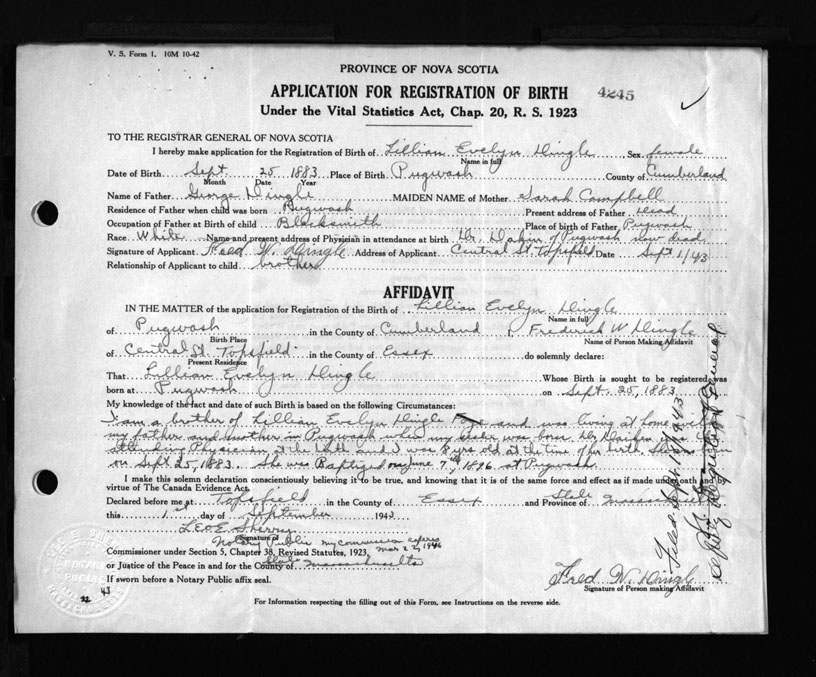 V. S. Form 1. 10M 10-42
PROVINCE OF NOVA SCOTIA
APPLICATION FOR REGISTRATION OF BIRTH 4245
Under the Vital Statistics Act, Chap. 20, R. S. 1923
TO THE REGISTRAR GENERAL OF NOVA SCOTIA
I hereby make application for the Registration of Birth of Lillian Evelyn Dingle Sex female
Name in full
Date of Birth Sept. 25 1883 Place of Birth Pugwash County of Cumberland
Month Date Year
Name of Father George Dingle MAIDEN NAME of Mother Sarah Campbell
Residence of Father when child was born Pugwash Present address of Father Dead
Occupation of Father at Birth of child Blacksmith Place of birth of Father Pugwash
Race White Name and present address of Physician in attendance at birth Dr. Dakin of Pugwash now dead
Signature of Applicant Fred W. Dingle Address of Applicant Central St. Topsfield Date Sept 1/43
Relationship of Applicant to child brother
AFFIDAVIT
IN THE MATTER of the application of Registration of the Birth of Lillian Evelyn Dingle
Name in full
of Pugwash in the County of Cumberland I, Frederick W. Dingle
Birth Place Name of Person Making Affidavit
of Central St. Topsfield in the County of Essex do solemnly declare:
Present Residence
That Lillian Evelyn Dingle Whose Birth is sought to be registered was
born at Pugwash on Sept. 25, 1883
My knowledge of the fact and date of such Birth is based on the following Circumstances:
I am a brother of Lillian Evelyn Dingle and was living at home with
my father and mother in Pugwash when my sister was born. Dr. Dakin
attending Physician at the birth and I was 8 yrs old at the time of her birth. She
on Sept 25, 1883. She was Baptized on June 7th, 1896 at Pugwash.
I make this solemn declaration conscientiously believing it to be true, and knowing that it is of the same force and effect as if made under oath and by
virtue of The Canada Evidence Act.
Declared before me at Topsfield in the County of Essex and Province of State Massachusetts
this 1st day of September 1943
Leo E. Sherry
Signature of
Notary Public my commission expires
Mar 22, 1946
Commissioner under Section 5, Chapter 38, Revised Statutes, 1923,
or Justice of the Peace in and for the County of State Massachusetts
If sworn before a Notary Public affix seal.
Fred W. Dingle
Signature of Person making Affidavit
43
For Information respecting the filling out of this Form, see Instructions on the reverse side.
NOTARY
PUBLIC
Filed Sept. 1943
Registrar General